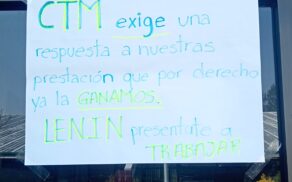 CTM exige una
respuesta a nuestras
prestación que por derecho
ya la GANAMOS.
LENIN presentate a
TRABAJAR